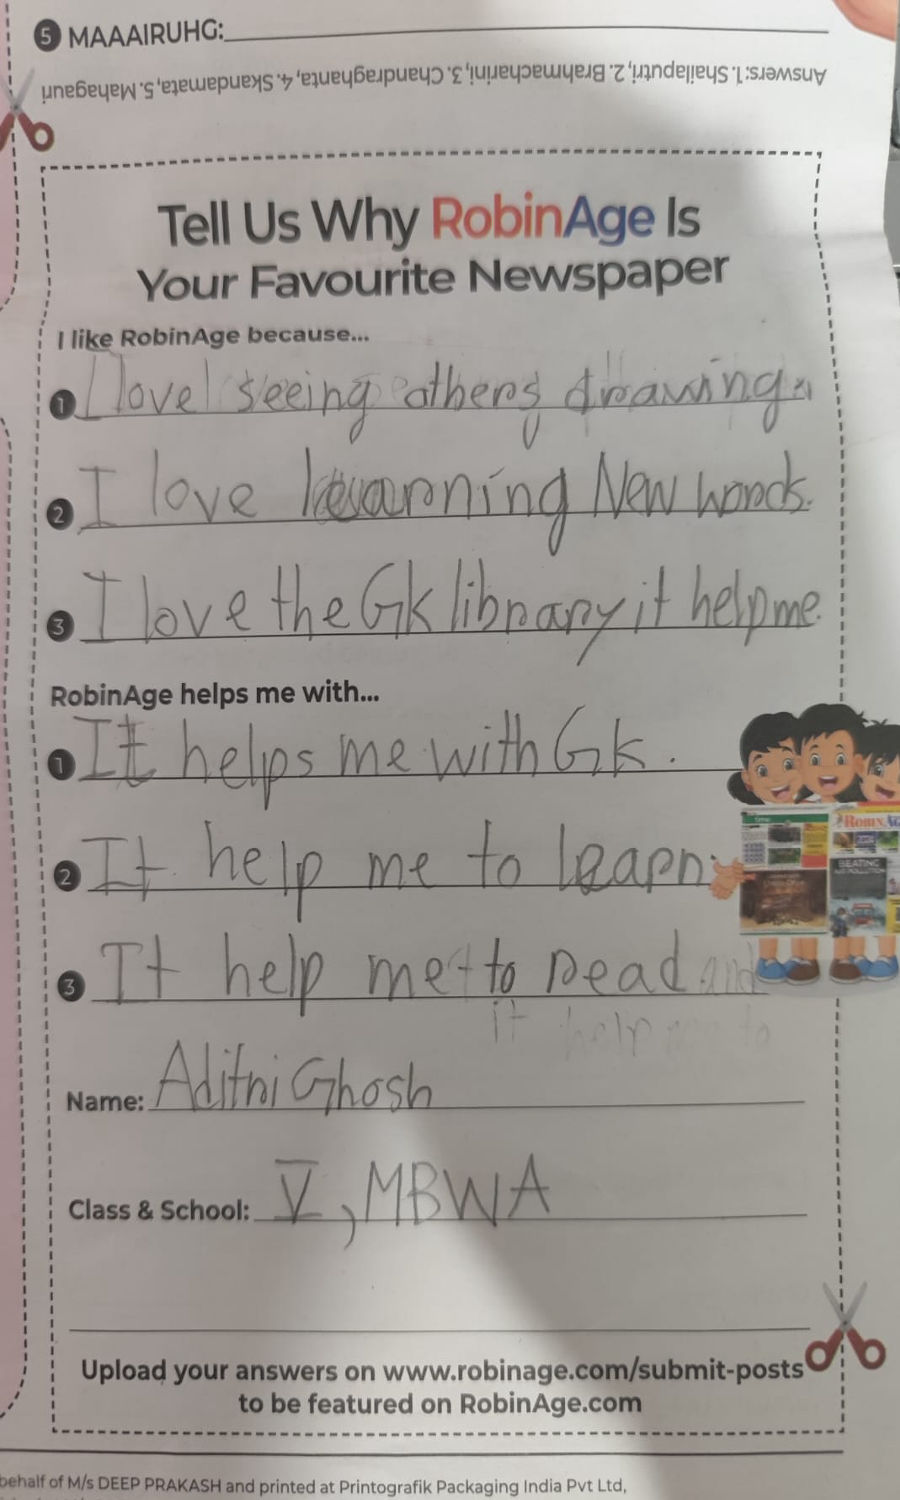 5 MAAAIRUHG:
Answers: 1. Shailaputri, 2. Brahmacharini, 3. Chandraghanta, 4. Skandamata, 5. Mahagauri
Tell Us Why RobinAge Is
Your Favourite Newspaper
I like RobinAge because...
1 I love seeing others drawing.
2 I love learning New words.
3 I love the Gk library it help me.
RobinAge helps me with...
1 It helps me with Gk.
2 It help me to learn
3 It help me to read and
it help me to
Name: Adithi Ghosh
Class & School: V, MBWA
Upload your answers on www.robinage.com/submit-posts
to be featured on RobinAge.com
behalf of M/s DEEP PRAKASH and printed at Printografik Packaging India Pvt Ltd,